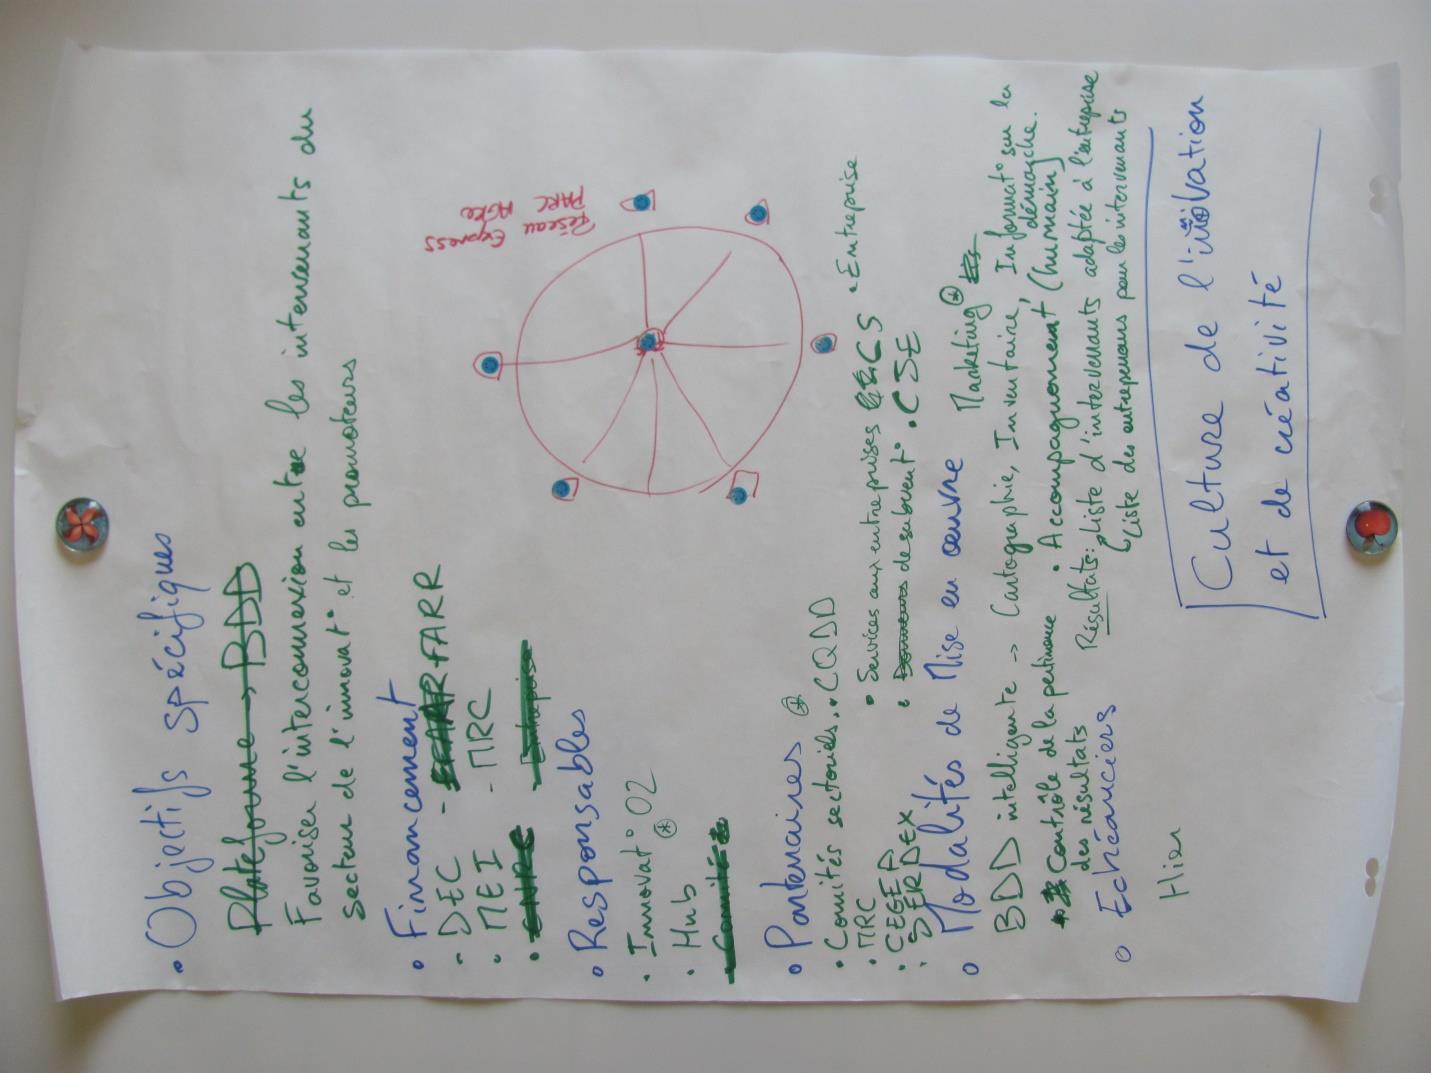 • Objectifs spécifiques
Plateforme → BDD
Favoriser l'interconnexion entre les intervenants du
secteur de l'innovat° et les promoteurs
• Financement
- DEC - FARR
- MEI - MRC
• Entreprise
• Responsables
• Innovat° 02
• Hub
- Comité
• Partenaires
• Comités sectoriels • CQDD
• MRC • Services aux entreprises CS • Entreprise
• CEGEP • Donneurs de subvent° • CSE
• SERDEX
• Modalités de Mise en œuvre Marketing
BDD intelligente → Cartographie, Inventaire, Informat° sur la démarche.
• Contrôle de la pertinence • Accompagnement (humain)
des résultats
Résultats: Liste d'intervenants adaptée à l'entreprise
↳ Liste des entreprenons pour les intervenants
• Echéanciers
Hier
Culture de l'innovation
et de créativité
Réseau Express
PARC AGRO